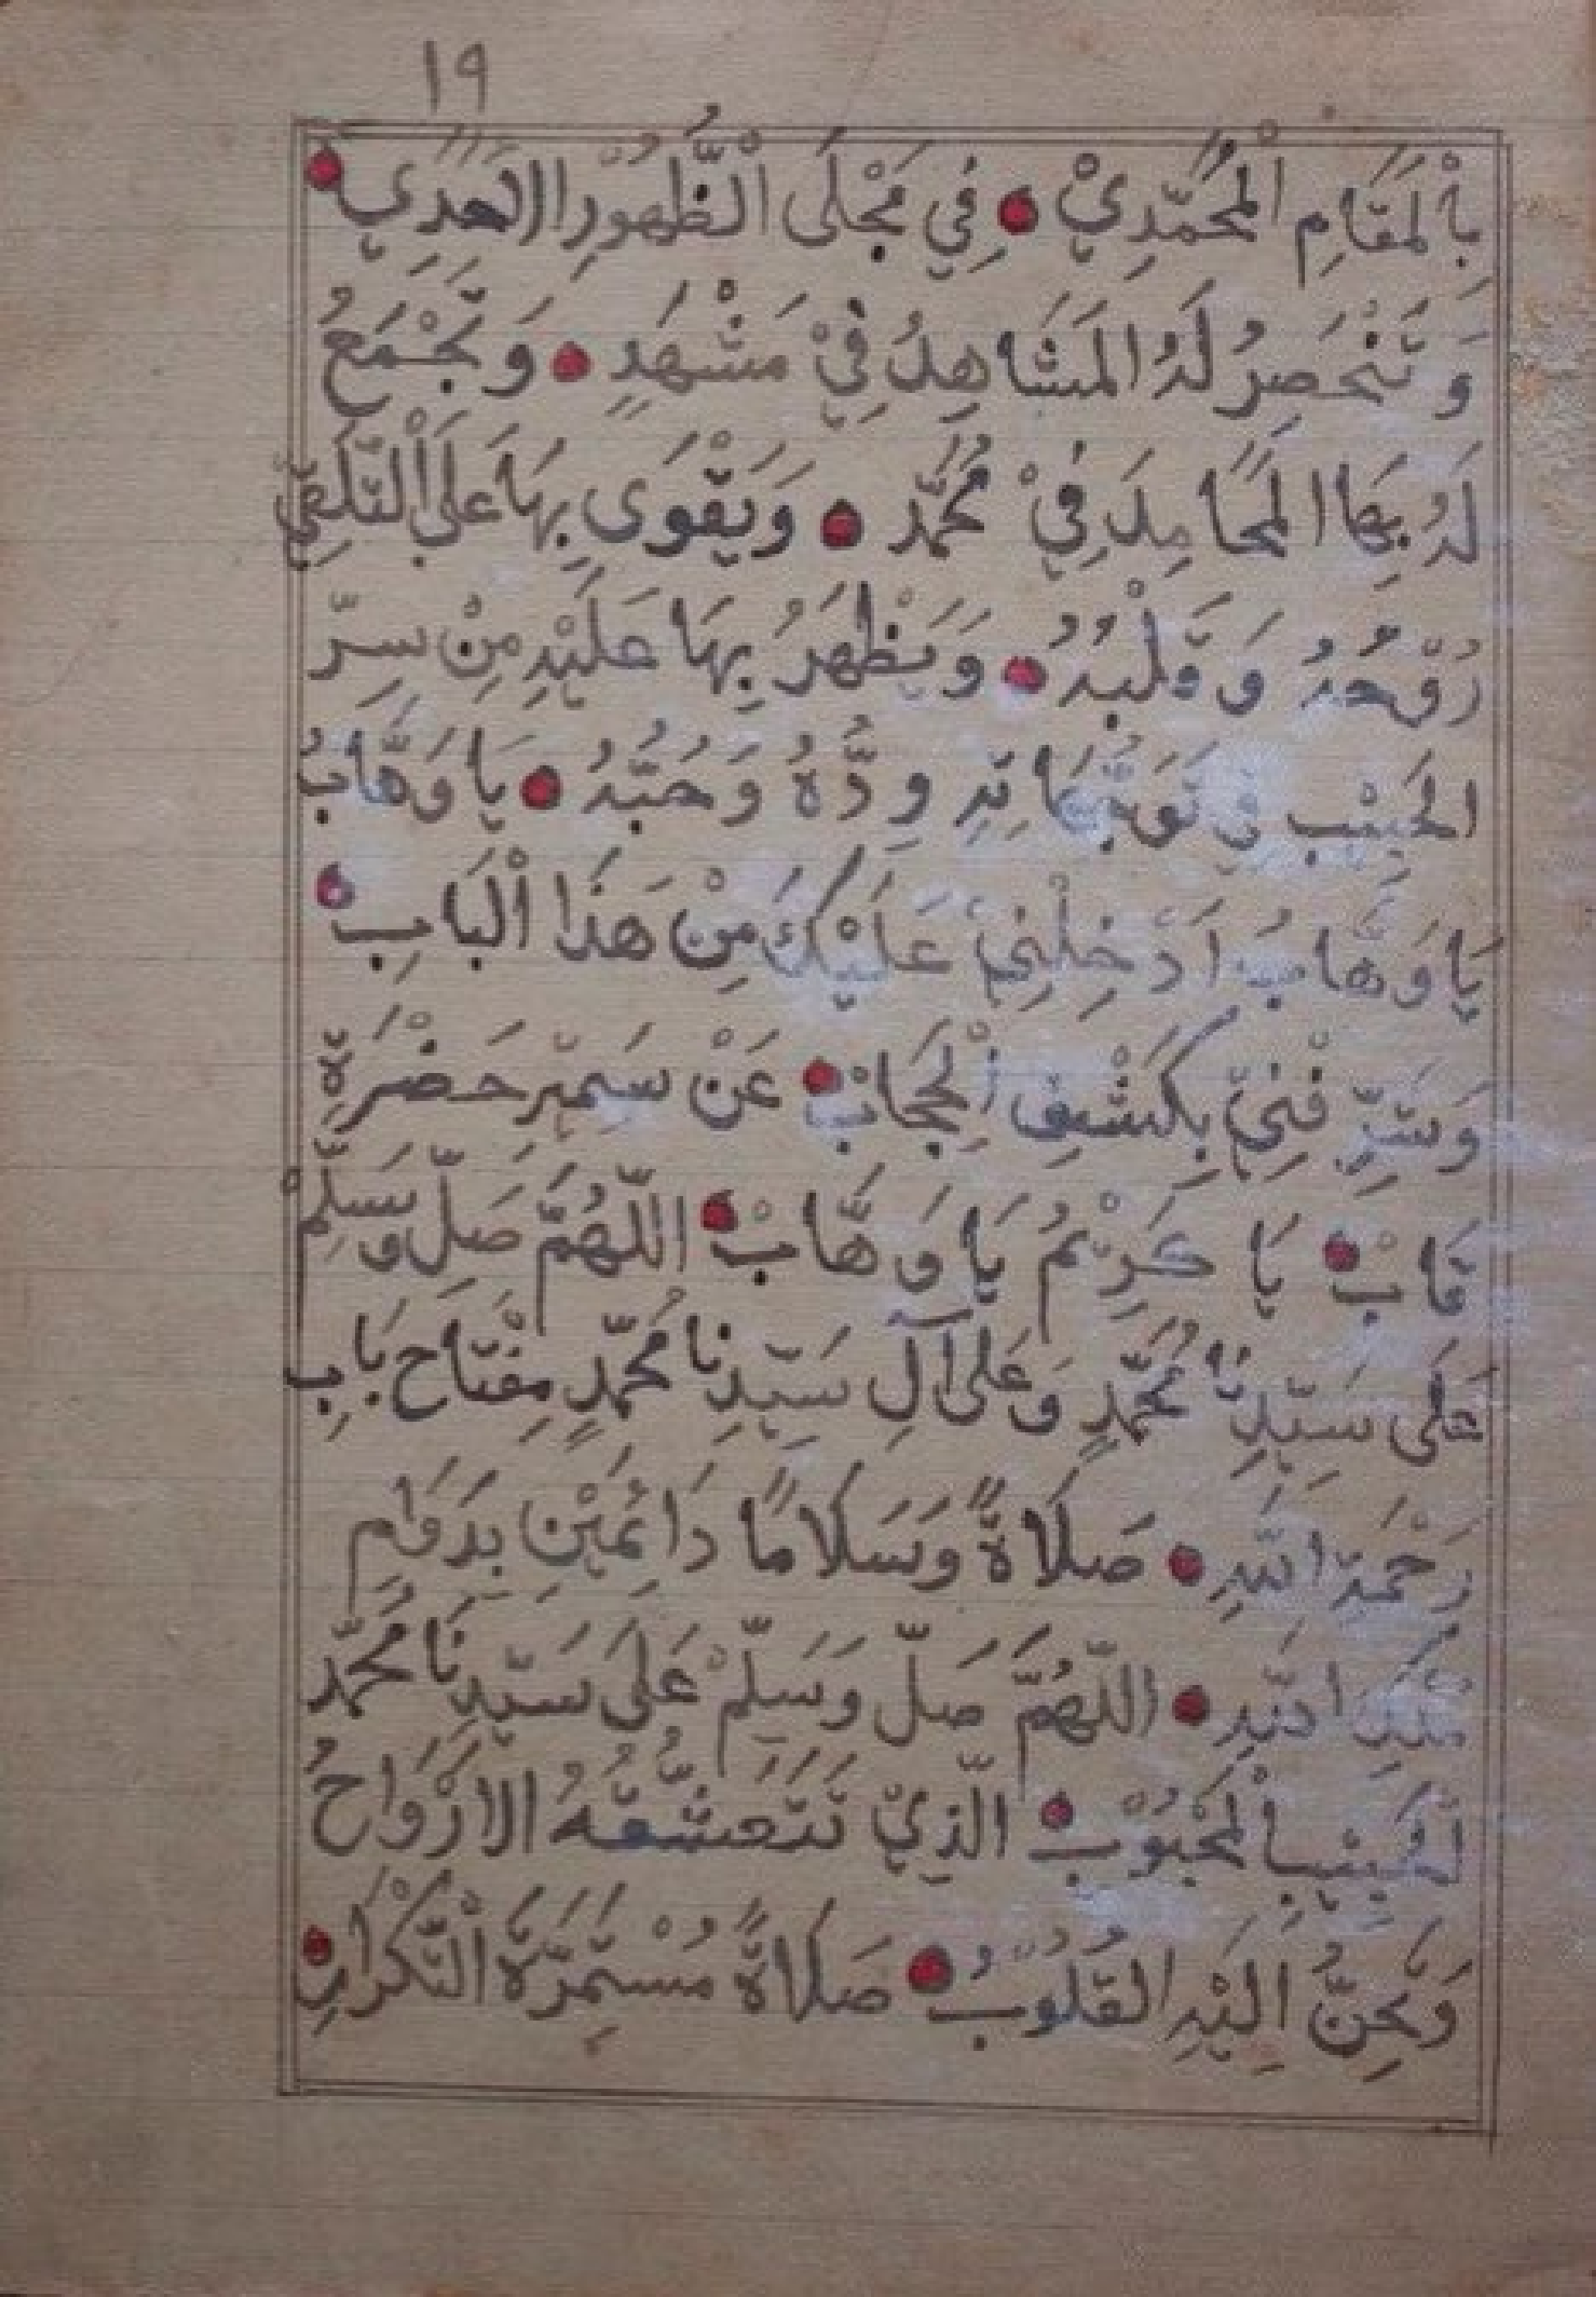 ١٩
بِاْلمَقَامِ اْلمُحَمَّدِيْ • فِي مَجْلَى الْظُّهُوْرِ الاَحَدِي •
وَتَنْحَصِرُ لَهُ المَشَاهِدُ فِيْ مَشْهَدٍ • وَتَجْمَعُ
لَهُ بِهَا المَحَامِدَ فِيْ مُحَمَّد • وَيَقْوَى بِهَا عَلَى اْلتَلَقِيّْ
رُوْحُهُ وَقَلْبُهُ • وَيَظْهَرُ بِهَا عَلَيْهِ مِنْ سِرّ
الحَبِيْب فِي تَوَجُّهَاتِهِ وِدُّهُ وَحُبُّهُ • يَا وَهَّابُ
يَا وَهَّابُ اَدْخِلْنِيْ عَلَيْكَ مِنْ هَذَا اْلبَابِ •
وَشَرِّفْنِيْ بِكَشْفِ اْلحِجَابْ • عَنْ سَمِيْرِ حَضْرَةِ
قَابْ • يَا كَرِيْمُ يَا وَهَّابْ • اللّهُمَّ صَلِّ وَسَلِّمْ
عَلَى سَيِّدِنَا مُحَمَّدٍ وَعَلَى آلِ سَيِّدِنَا مُحَمَّدٍ مِفْتَاح بَابِ
رَحْمَةِ اللهِ • صَلَاةً وَسَلَامًا دَائِمَيْنِ بِدَوَامِ
مُلْكِ اللهِ • اللّهُمَّ صَلّ وَسَلِّمْ عَلَى سَيِّدِنَا مُحَمَّد
اْلحَبِيْبِ اْلمَحْبُوْبْ • الَّذِيْ تَتَعَشَّقُهُ الاَرْوَاحُ
وَتَحِنُّ اِلَيْهِ القُلُوْبُ • صَلَاةً مُسْتَمِرَّةَ اْلتَّكْرَارِ •